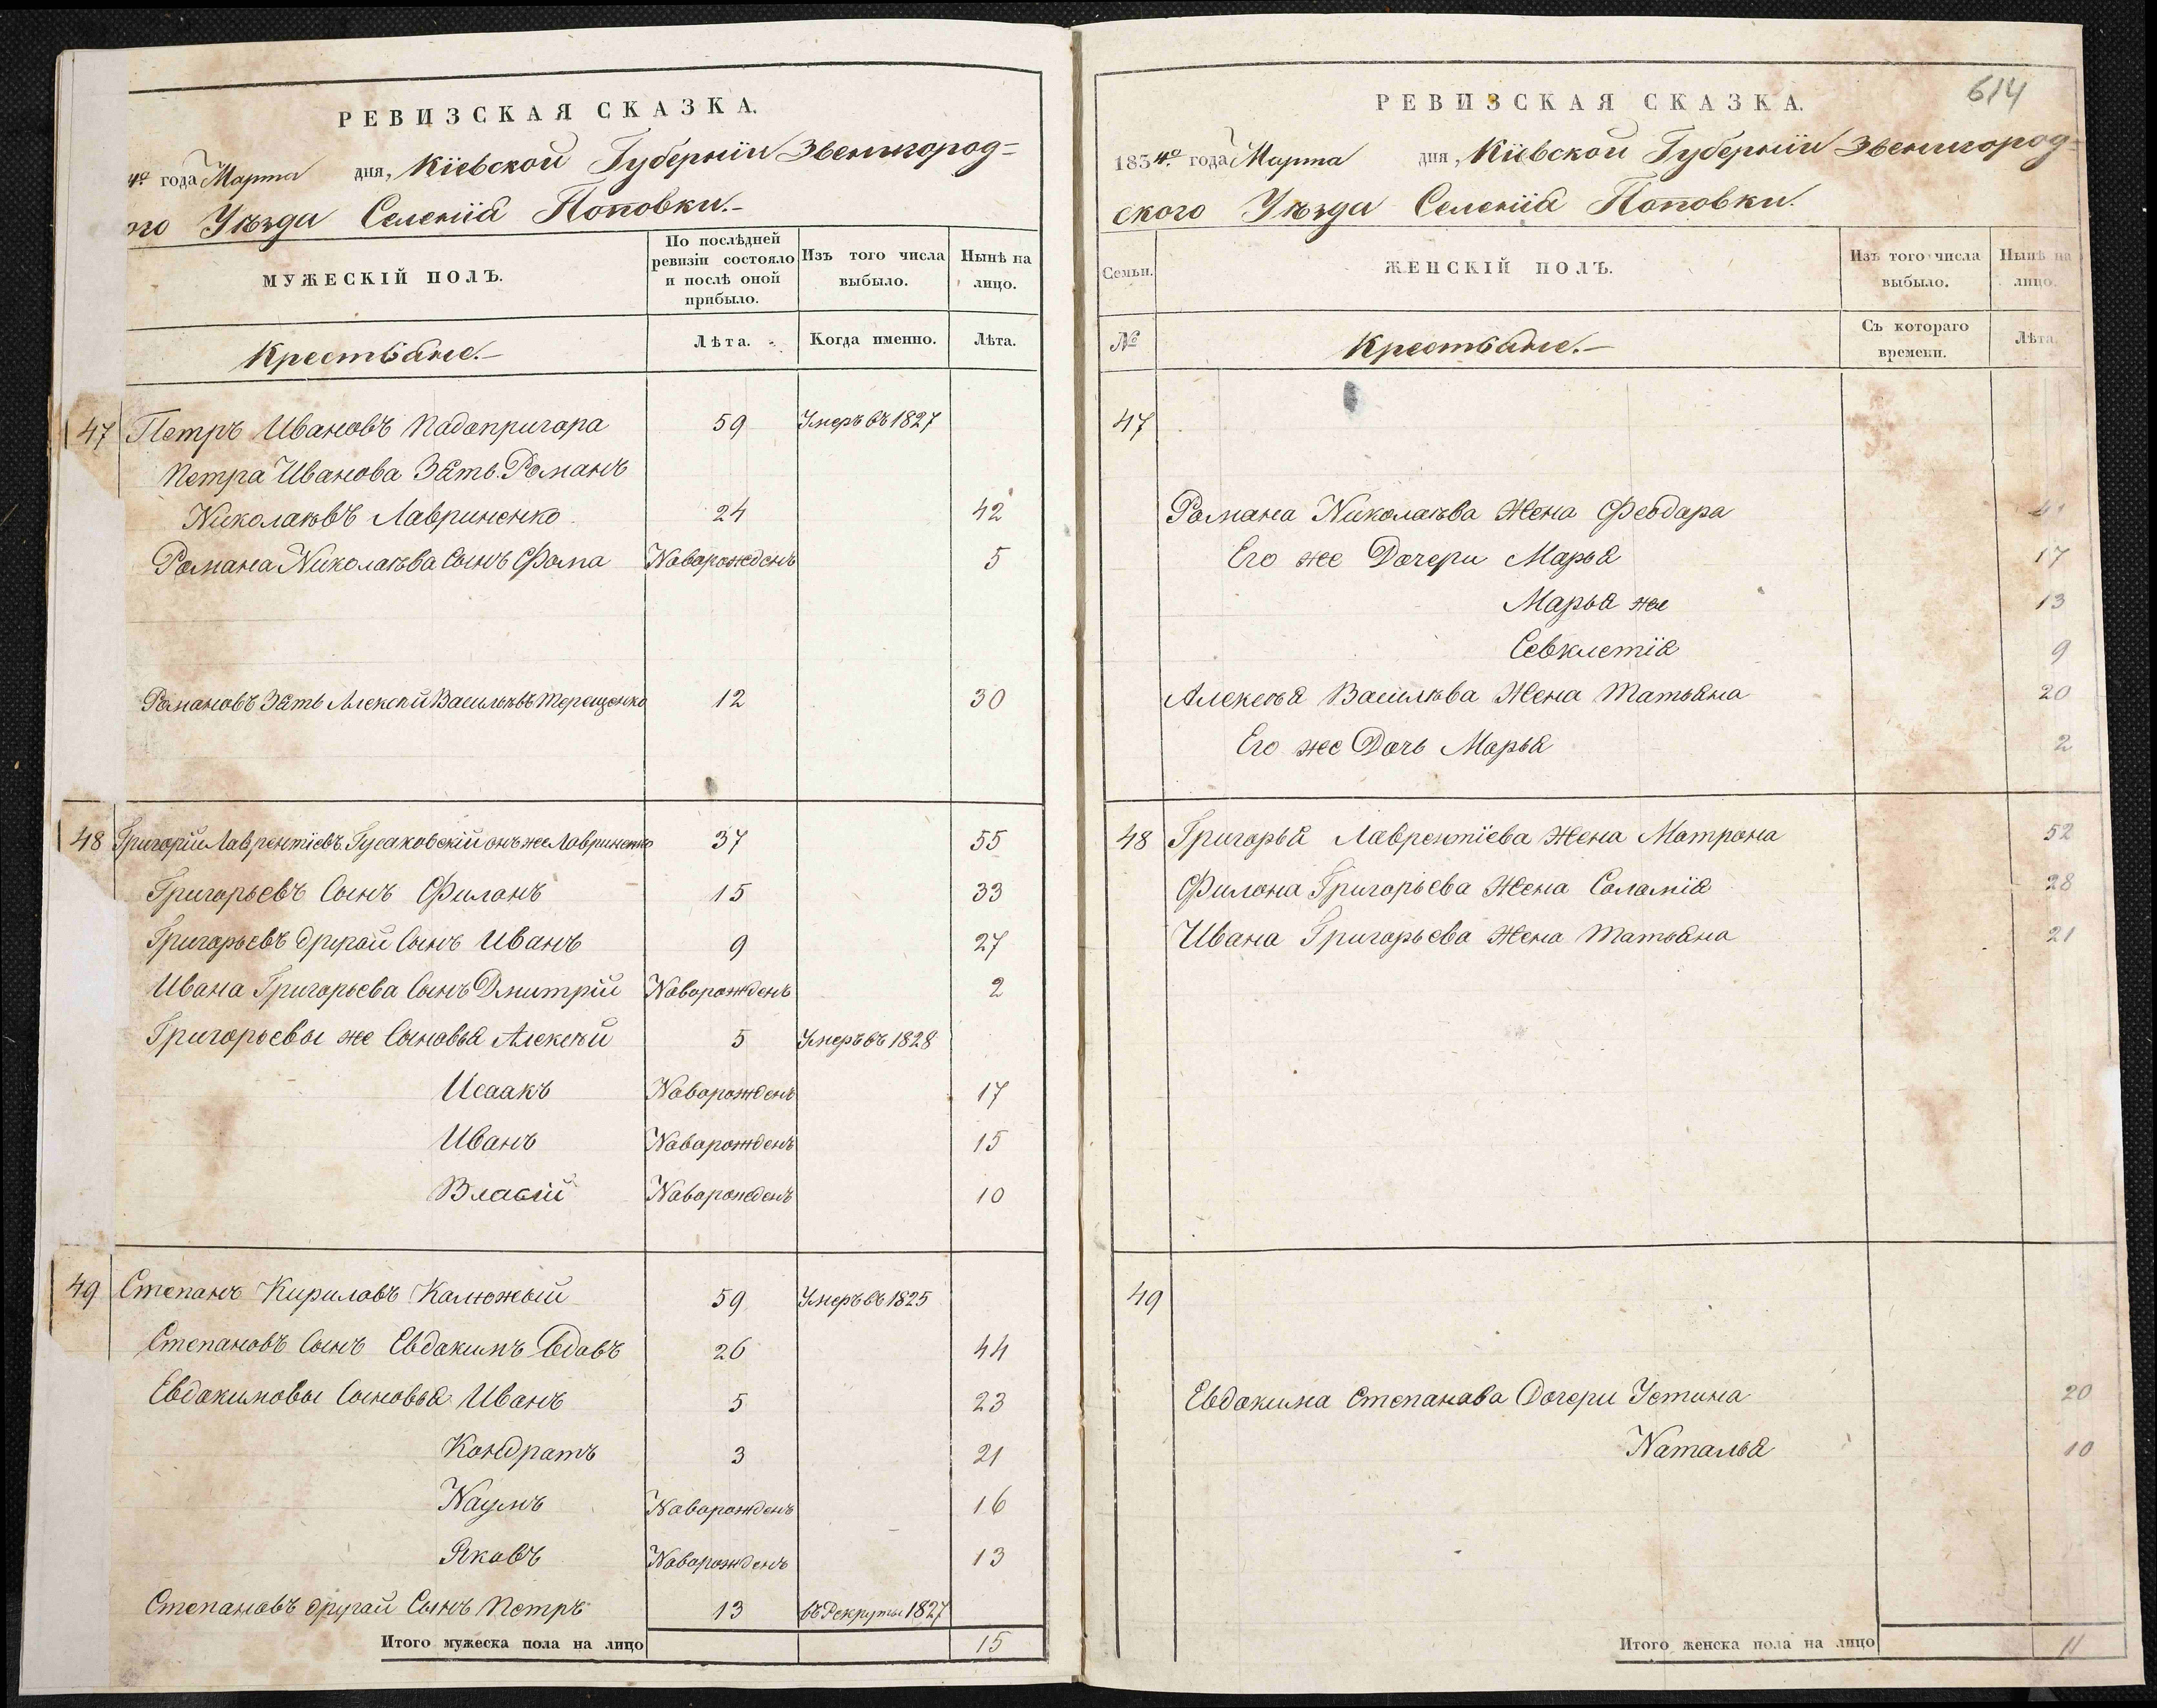 РЕВИЗСКАЯ СКАЗКА.
4го года Марта дня, Кіевской Губерніи Звенигород=
ого Уѣзда Селенія Поповки.-
МУЖЕСКІЙ ПОЛЪ.
По послѣдней ревизіи состояло и послѣ оной прибыло.
Изъ того числа выбыло.
Нынѣ на лицо.
Крестьяне.-
Лѣта.
Когда именно.
Лѣта.
47 Петръ Ивановъ Падопригора 59 Умеръ въ 1827
Петра Иванова Зять Романъ
Николаѣвъ Лавриненко 24 42
Романа Николаѣва Сынъ Фома Наварожденъ 5
Романовъ Зять Алексѣй Васильѣвъ Терещенко 12 30
48 Григорій Лаврентіевъ Гусаковскій онъ же Лавриненко 37 55
Григорьевъ Сынъ Филонъ 15 33
Григорьевъ другой Сынъ Иванъ 9 27
Ивана Григорьева Сынъ Дмитрій Наворожденъ 2
Григорьевы же Сыновья Алексѣй 5 Умеръ въ 1828
Исаакъ Наворожденъ 17
Иванъ Наворожденъ 15
Власій Наворожденъ 10
49 Степанъ Кириловъ Калюжный 59 Умеръ въ 1825
Степановъ Сынъ Евдокимъ Вдовъ 26 44
Евдокимовы Сыновья Иванъ 5 23
Кондратъ 3 21
Наумъ Наворожденъ 16
Яковъ Наворожденъ 13
Степановъ другой Сынъ Петръ 13 въ Рекруты 1827
Итого мужеска пола на лицо 15
614
РЕВИЗСКАЯ СКАЗКА.
1834го года Марта дня, Кіевской Губерніи Звенигород=
ского Уѣзда Селенія Поповки.
Семьи.
ЖЕНСКІЙ ПОЛЪ.
Изъ того числа выбыло.
Нынѣ на лицо.
№
Крестьяне.-
Съ котораго времени.
Лѣта.
47
Романа Николаѣва Жена Феодора 41
Его же Дочери Марья 17
Марья же 13
Севклетія 9
Алексѣя Васильѣва Жена Татьяна 20
Его же Дочь Марья 2
48 Григорья Лаврентіева Жена Матрона 52
Филона Григорьева Жена Соломія 28
Ивана Григорьева Жена Татьяна 21
49
Евдокима Степанова Дочери Устина 20
Наталья 10
Итого женска пола на лицо 11